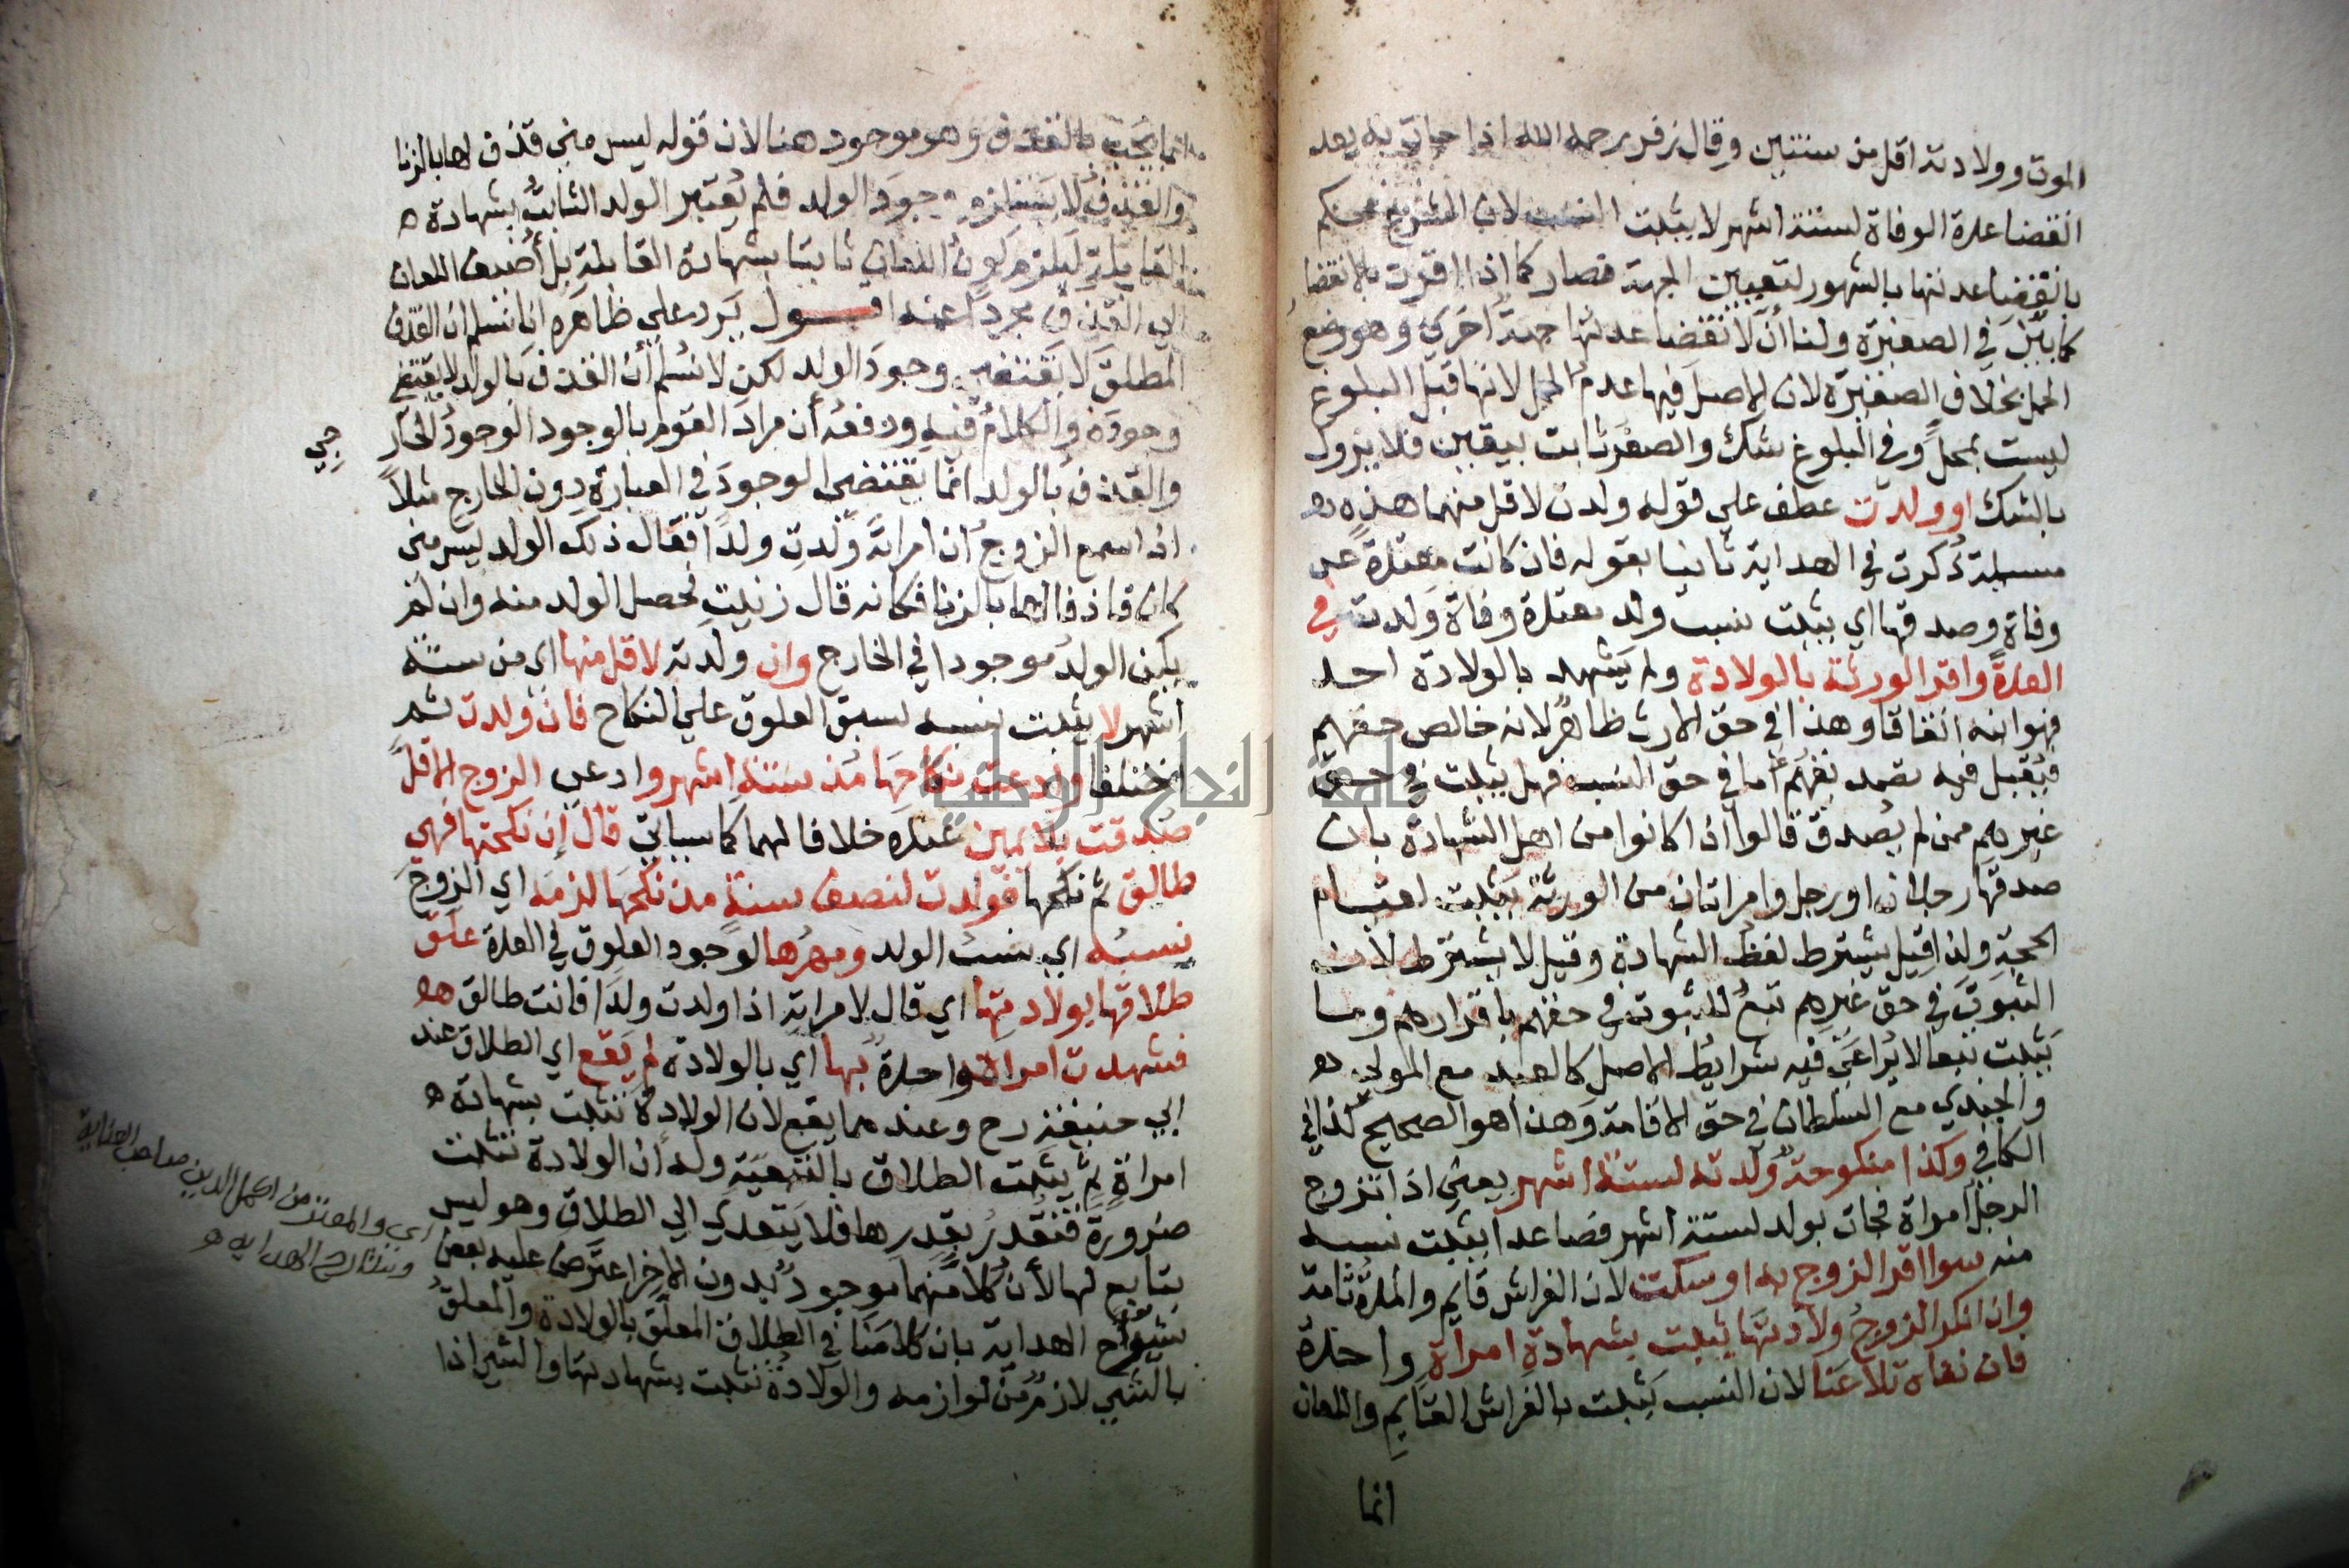 الموت وولادته اقل من سنتين وقال زفر رحمه الله اذا جات به بعد
انقضا عدة الوفاة لستة اشهر لا يثبت النسب لان الشرع حكم
بانقضا عدتها بالشهور لتعيين الجهة فصار كما اذا اقرت بالانقضا
كما بيّن في الصغيرة ولنا أنّ لانقضا عدتها جهة اخرى وهو وضع
الحمل بخلاف الصغيرة لان الاصل فيها عدم الحمل لانها قبل البلوغ
ليست بمحل وفي البلوغ شك والصغر ثابت بيقين فلا يزول
بالشك او ولدت عطف على قوله ولدت لاقل منهما هذه
مسئلة ذكرت في الهداية ثانيا بقوله فان كانت معتدة عن
وفاة وصدقها اي يثبت نسب ولد معتدة وفاة ولدته في
العدة واقر الورثة بالولادة ولم يشهد بالولادة احد
فهو ابنه اتفاقا وهذا في حق الارث ظاهر لانه خالص حقهم
فيقبل فيه تصديقهم اما في حق النسب فهل يثبت في حق
غيرهم ممن لم يصدق قالوا اذا كانوا من اهل الشهادة بان
صدقها رجلان او رجل وامراتان من الورثة يثبت لقيام
الحجة ولذا قيل يشترط لفظ الشهادة وقيل لا يشترط لان
الثبوت في حق غيرهم تبع للثبوت في حقهم باقرارهم وما
يثبت تبعا لا يراعى فيه شرايط الاصل كالعبد مع المولى
والجندي مع السلطان في حق الاقامة وهذا هو الصحيح كذا في
الكافي وكذا منكوحة ولدته لستة اشهر يعني اذا تزوج
الرجل امراة فجات بولد لستة اشهر فصاعدا يثبت نسبه
منه سوا اقر الزوج به او سكت لان الفراش قايم والمدة تامة
وان انكر الزوج ولادتها يثبت بشهادة امراة واحدة
فان نفاه تلاعنا لان النسب يثبت بالفراش القايم واللعان
انما
انما يجب بالقذف وهو موجود هنا لان قوله ليس مني قذف لها بالزنا
والقذف لا يستلزم وجود الولد فلم يعتبر الولد الثابت بشهادة
القابلة ليلزم كون اللعان ثابتا بشهادة القابلة بل أضيف اللعان
الى القذف مجردا عنه اقـــول يرد على ظاهره انا نسلم ان القذف
المطلق لا يقتضي وجود الولد لكن لا نسلم أن القذف بالولد لا يقتضي
وجوده والكلام فيه ودفعه أن مراد القوم بالوجود الوجود الخار
جي
والقذف بالولد انما يقتضي الوجود في العبارة دون الخارج مثلاً
اذا سمع الزوج ان امراته ولدت ولداً فقال ذلك الولد ليس مني
كان قاذفا لها بالزنا فكانه قال زنيت فحصل الولد منه وان لم
يكن الولد موجودا في الخارج وان ولدته لاقل منها اي من ستة
أشهر لا يثبت نسبه لسبق العلوق على النكاح فان ولدت ثم
اختلفا وادعت نكاحها مذ ستة اشهر وادعى الزوج الاقل
صدقت بلا يمين عنده خلافا لهما كما سياتي قال إن نكحتها فهي
طالق ثم نكحها فولدت لنصف سنة مذ نكحها لزمه اي الزوج
نسبه اي نسب الولد ومهرها لوجود العلوق في العدة علق
طلاقها بولادتها اي قال لامراته اذا ولدت ولدا فانت طالق
فشهدت امراة واحدة بها اي بالولادة لم يقع اي الطلاق عند
ابي حنيفة رح وعندهما يقع لان الولادة تثبت بشهادة
امراة ثم يثبت الطلاق بالتبعية وله أن الولادة تثبت
ضرورة فتقدر بقدرها فلا يتعدى الى الطلاق وهو ليس
بتابع لها لأن كلا منهما موجود بدون الاخر اعترض عليه بعض
شراح الهداية بان كلامنا في الطلاق المعلق بالولادة والمعلق
بالشي لازم من لوازمه والولادة تثبت بشهادتها والشي اذا
اي والمعترض اكمل الدين صاحب العناية
وشارح الهداية
جامعة النجاح الوطنية